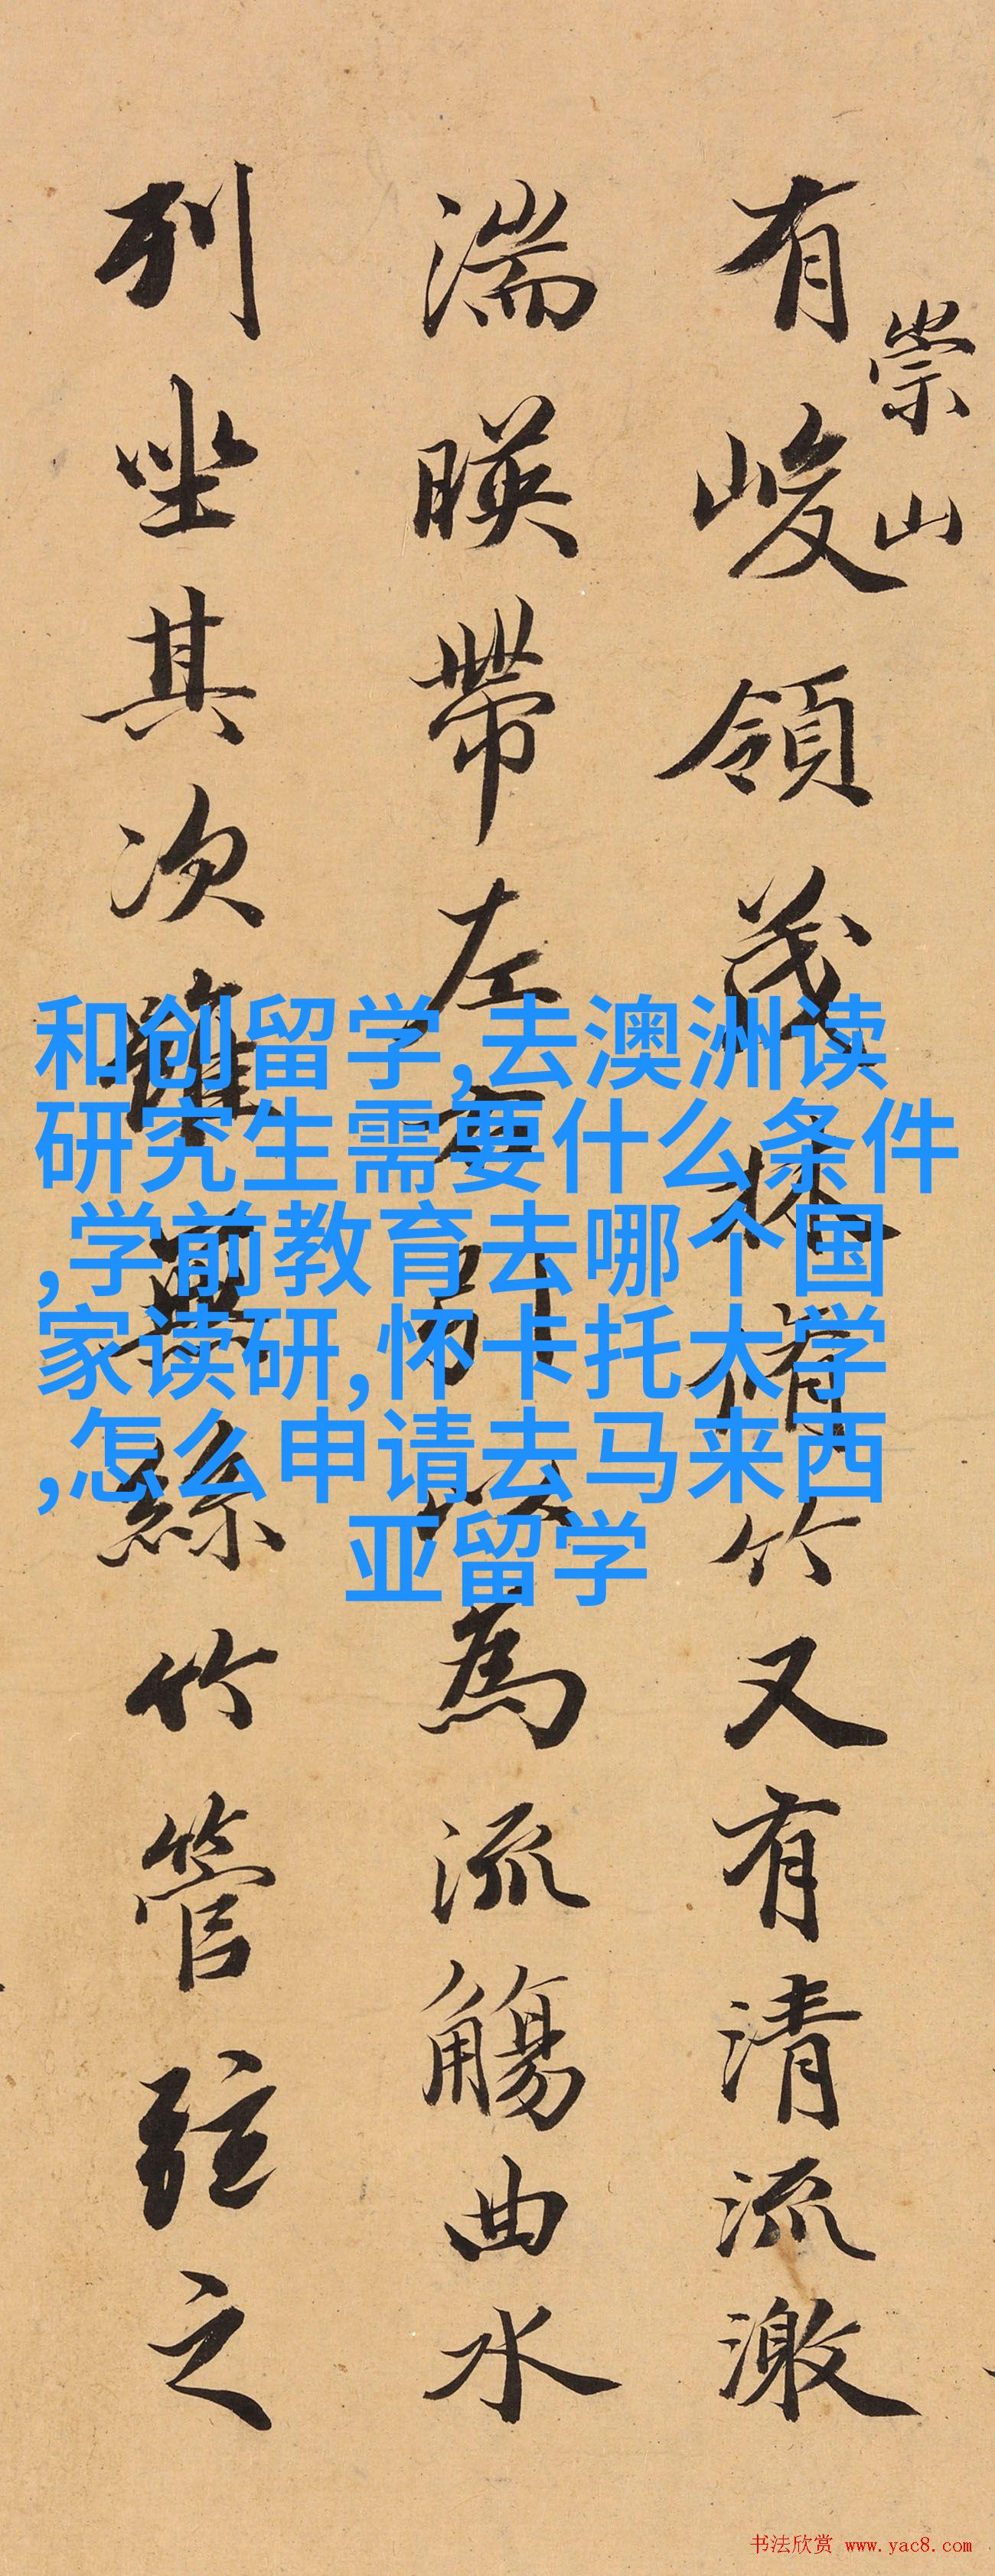 崇山
有峻領茂林脩竹又有清流激
湍暎帶左右引以為流觴曲水
列坐其次雖無絲竹管弦之
和创留学,去澳洲读
研究生需要什么条件
,学前教育去哪个国
家读研,怀卡托大学
,怎么申请去马来西
亚留学
书法欣赏 www.yac8.com